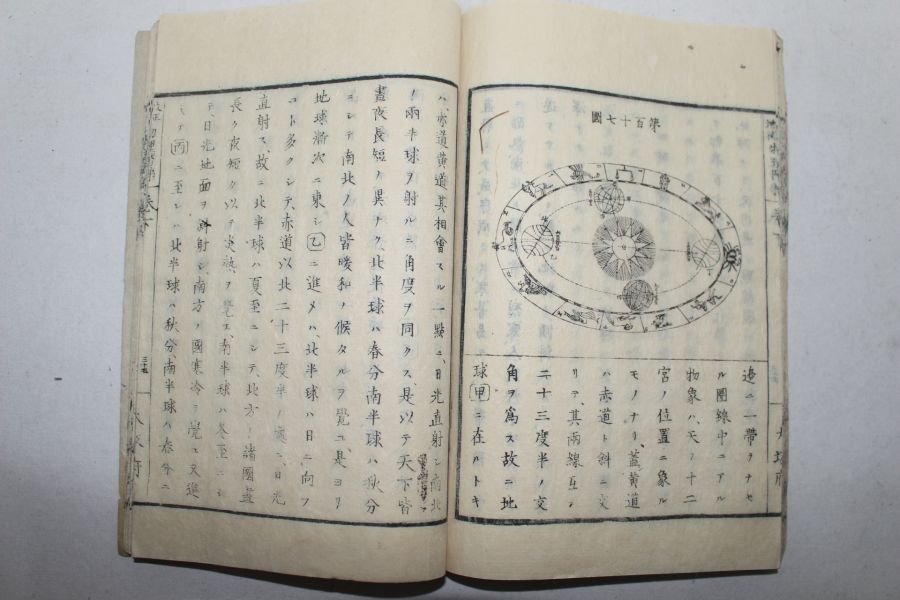 第百十七圖
邊ニ一帶ヲナセ
ル圈線中ニアル
物象ハ、天ノ十二
宮ノ位置ニ象ル
モノナリ、蓋黄道
ハ赤道ト斜ニ交
リテ、其兩線互ニ
二十三度半ノ交
角ヲ爲ス故ニ地
球甲ニ在ルトキ
ハ赤道黄道其相會スル一點ニ、日光直射シ南北
ノ兩半球ヲ射ルニ角度ヲ同クス、是以テ天下皆
晝夜長短ノ異ナク、北半球ハ春分南半球ハ秋分
ニシテ南北ノ人皆暖和ノ候タルヲ覺ユ、是ヨリ
地球漸次ニ東シ乙ニ進メハ北半球ハ日ニ向フ
コト多クシテ、赤道以北二十三度半ノ處ニ、日光
直射ス、故ニ北半球ハ夏至ニシテ、北方ノ諸國晝
長ク夜短ク以テ炎熱ヲ覺エ南半球ハ冬至ニシ
テ、日光地面ヲ斜射シ、南方ノ國寒冷ヲ覺エ又進
ミテ丙ニ至レハ北半球ハ秋分、南半球ハ春分ニ